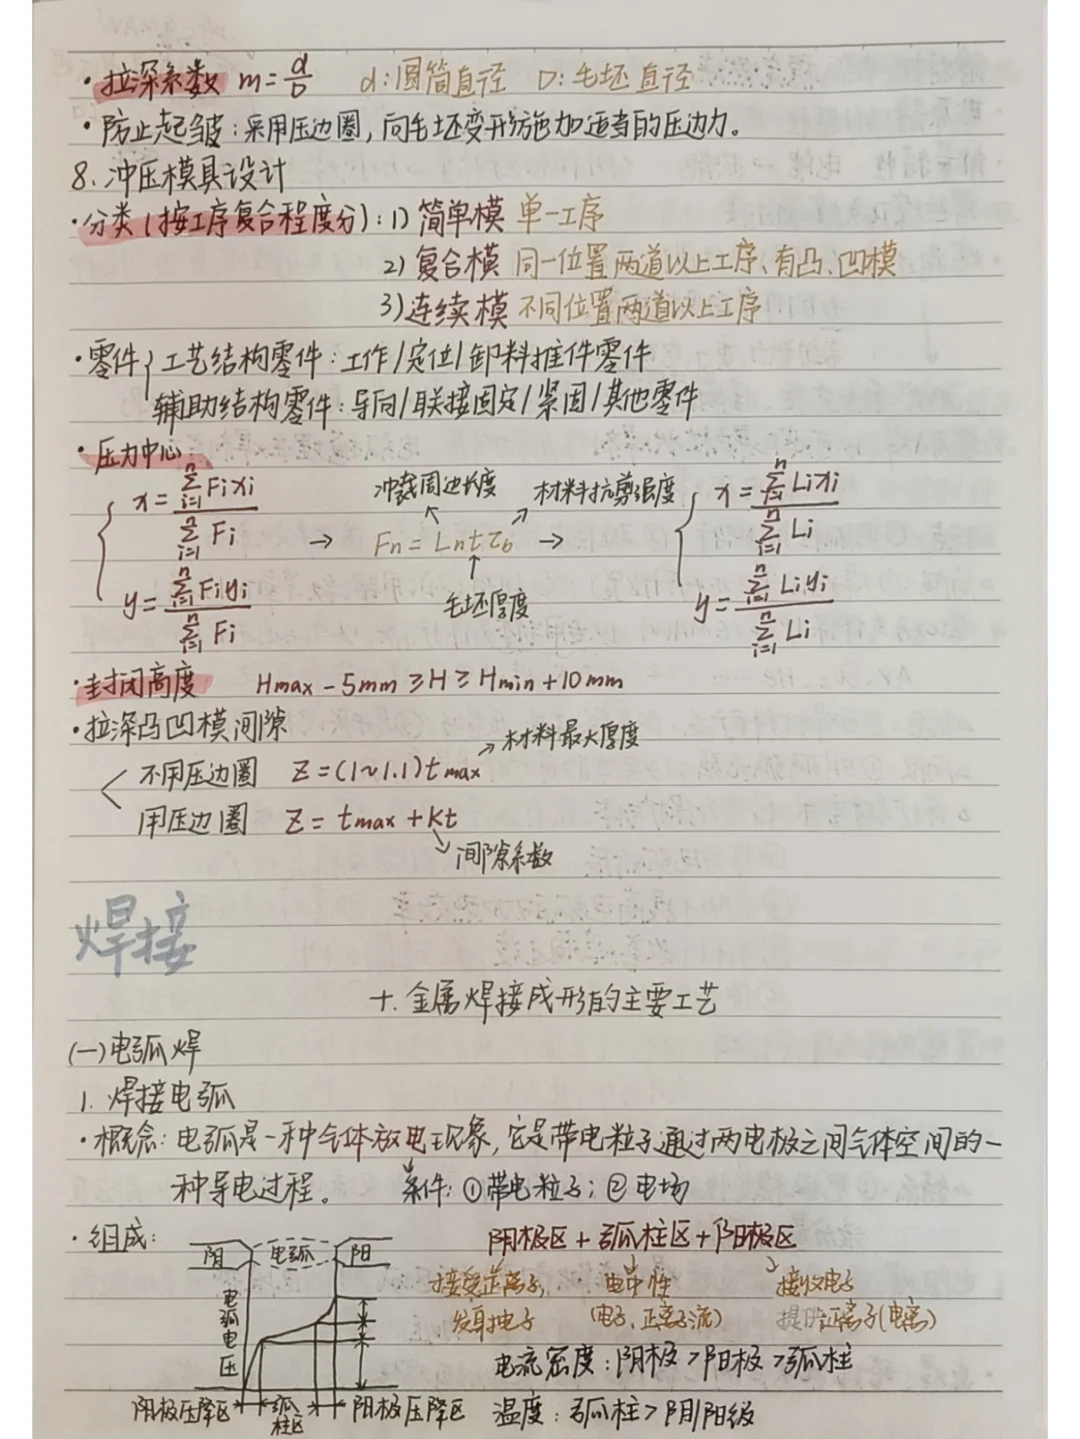 ·拉深系数 m=d/D d:圆筒直径 D:毛坯直径
·防止起皱:采用压边圈,向毛坯变形施加适当的压边力。
8.冲压模具设计
·分类(按工序复合程度分):1)简单模 单一工序
2)复合模 同一位置两道以上工序、有凸、凹模
3)连续模 不同位置两道以上工序
·零件{工艺结构零件:工作/定位/卸料推件零件
辅助结构零件:导向/联接固定/紧固/其他零件
·压力中心
{ x=∑(i=1→n)Fixi / ∑(i=1→n)Fi
y=∑(i=1→n)Fiyi / ∑(i=1→n)Fi
→ Fn=Lntτb →
冲裁周边长度 材料抗剪强度
毛坯厚度
{ x=∑(i=1→n)Lixi / ∑(i=1→n)Li
y=∑(i=1→n)Liyi / ∑(i=1→n)Li
·封闭高度 Hmax-5mm≥H≥Hmin+10mm
·拉深凸凹模间隙
不用压边圈 Z=(1~1.1)tmax →材料最大厚度
用压边圈 Z=tmax+Kt
间隙系数
焊接
十.金属焊接成形的主要工艺
(一)电弧焊
1.焊接电弧
·概念:电弧是一种气体放电现象,它是带电粒子通过两电极之间气体空间的一
种导电过程。 条件:①带电粒子;②电场
·组成:
阴 电弧 阳
电弧电压
阴极压降区 弧柱区 阳极压降区
阴极区+弧柱区+阳极区
接受正离子, 电中性 接收电子
发射电子 (电子、正离子流) 提供正离子(电离)
电流密度:阴极>阳极>弧柱
温度:弧柱>阴/阳级